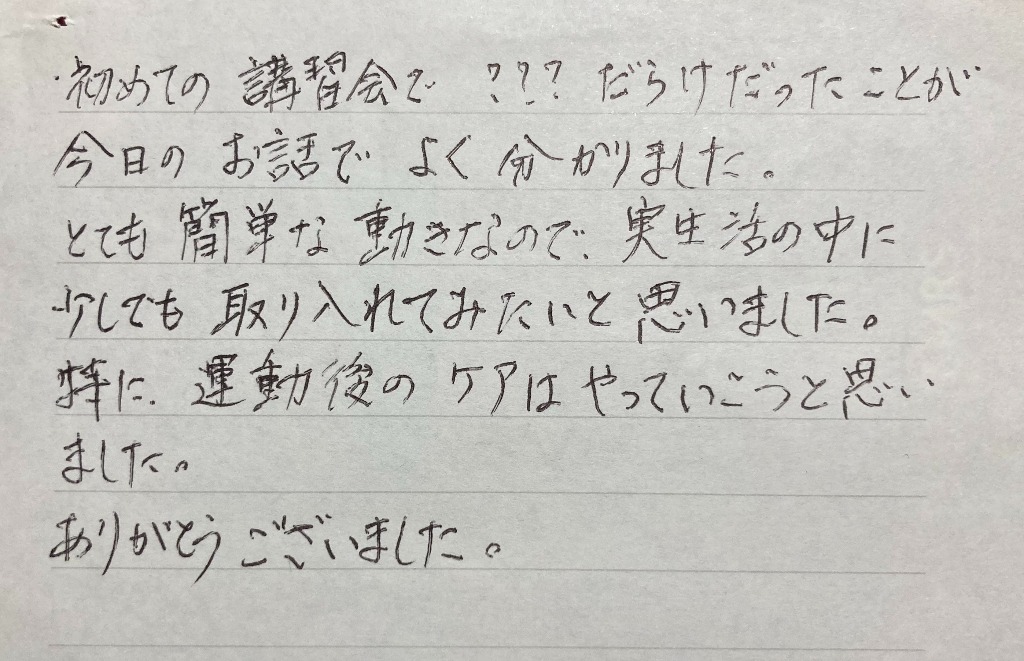 初めての講習会で ??? だらけだったことが
今日のお話で よく分かりました。
とても簡単な動きなので、実生活の中に
少しでも取り入れてみたいと思いました。
特に、運動後のケアはやっていこうと思い
ました。
ありがとうございました。